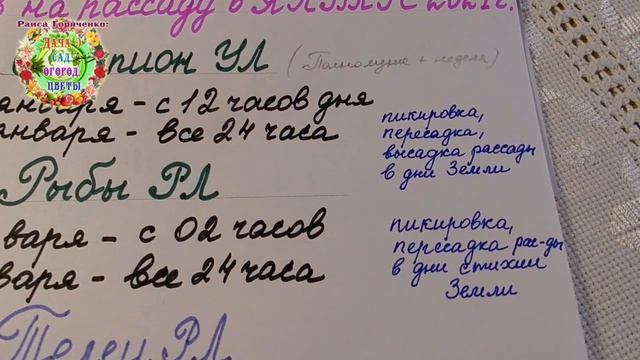 Раиса Горяченко:
ДАЧА
САД
ОГОРОД
ЦВЕТЫ
на рассаду в ЯНВАРЕ 2021г.
пион УЛ (Полнолуние + неделя)
января - с 12 часов дня
января - все 24 часа
пикировка,
пересадка,
высадка рассады
в дни Земли
Рыбы РЛ
варя - с 02 часов
варя - все 24 часа
пикировка,
пересадка рас-ды
в дни стихии
Земли
Телец РЛ